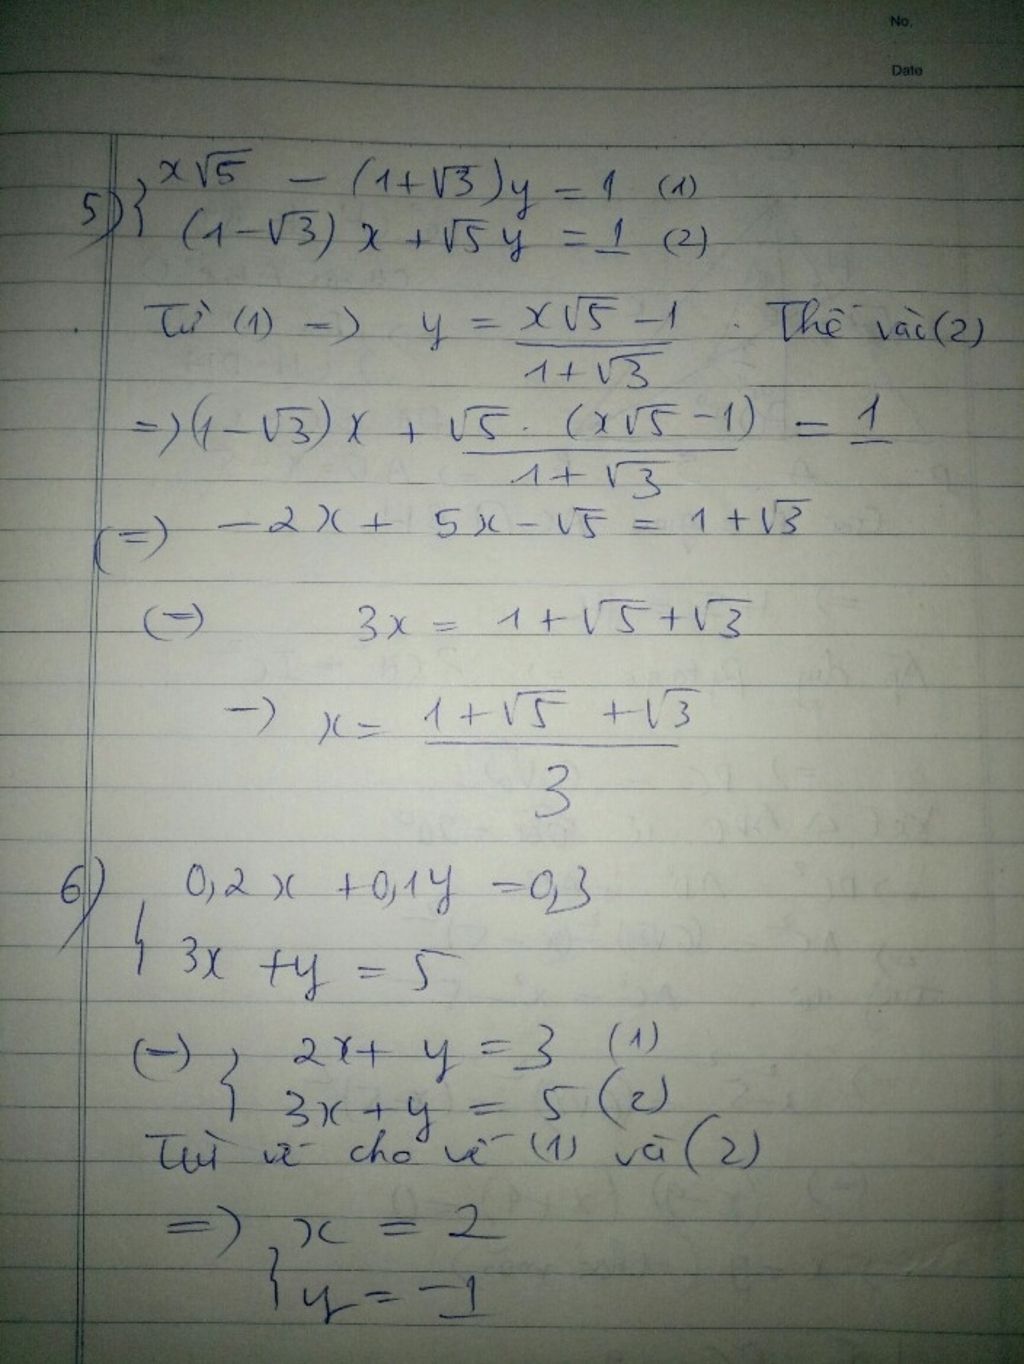 No.
Date
5) { x√5 - (1+√3)y = 1 (1)
(1-√3)x + √5y = 1 (2)
Từ (1) => y = (x√5 - 1)/(1+√3) . Thế vào (2)
=> (1-√3)x + √5.(x√5-1)/(1+√3) = 1
(=) -2x + 5x - √5 = 1 + √3
(=) 3x = 1 + √5 + √3
-> x = (1+√5+√3)/3
6) { 0,2x + 0,1y = 0,3
3x + y = 5
(=) { 2x + y = 3 (1)
3x + y = 5 (2)
Trừ vế cho vế (1) và (2)
=> { x = 2
y = -1